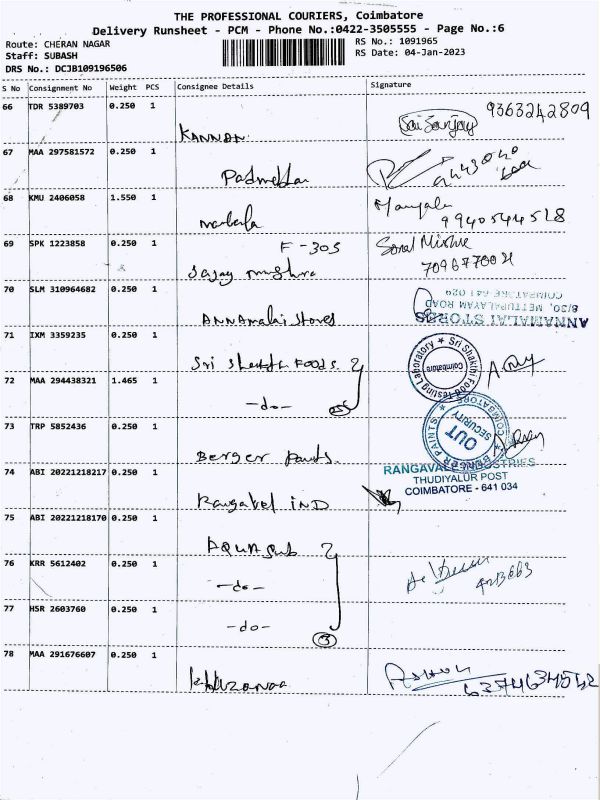 THE PROFESSIONAL COURIERS, Coimbatore
Delivery Runsheet - PCM - Phone No.:0422-3505555 - Page No.:6
Route: CHERAN NAGAR
RS No.: 1091965
Staff: SUBASH
RS Date: 04-Jan-2023
DRS No.: DCJB109196506
S No Consignment No Weight PCS Consignee Details Signature
66 TDR 5389703 0.250 1
KANNAN
Sai Sanjay 9363242809
67 MAA 297581572 0.250 1
68 KMU 2406058 1.550 1
9940544518
69 SPK 1223858 0.250 1
F-305
70 SLM 310964682 0.250 1
ANNAmalai Stores
ANNAMALAI STORES
8/30, METTUPALAYAM ROAD
COIMBATORE-641 029
71 IXM 3359235 0.250 1
Sri Shakthi Foods
Sri Shakthi Food Testing Laboratory ★ Coimbatore
72 MAA 294438321 1.465 1
-do-
73 TRP 5852436 0.250 1
Berger Paints
BERGER PAINTS ★ COIMBATORE
SECURITY
OUT
74 ABI 20221218217 0.250 1
Rangavel IND
RANGAVEL INDUSTRIES
THUDIYALUR POST
COIMBATORE - 641 034
75 ABI 20221218170 0.250 1
AQUAsub
76 KRR 5612402 0.250 1
-do-
77 HSR 2603760 0.250 1
-do-
3
78 MAA 291676607 0.250 1